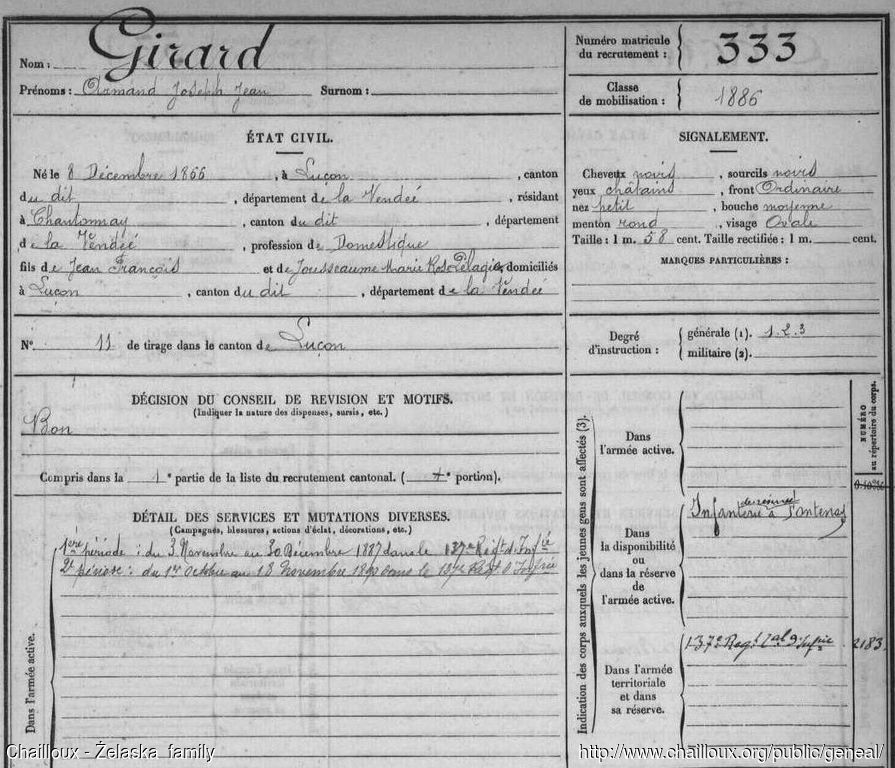 Nom : Girard
Prénoms : Armand Joseph Jean Surnom :
Numéro matricule du recrutement : 333
Classe de mobilisation : 1886
ÉTAT CIVIL.
Né le 8 Décembre 1866, à Luçon, canton
du dit, département de la Vendée, résidant
à Chantonnay, canton du dit, département
de la Vendée, profession de Domestique
fils de Jean François et de Jousseaume Marie Rose Pélagie, domiciliés
à Luçon, canton du dit, département de la Vendée
SIGNALEMENT.
Cheveux noirs, sourcils noirs
yeux châtains, front Ordinaire
nez petit, bouche moyenne
menton rond, visage Ovale
Taille : 1 m. 58 cent. Taille rectifiée : 1 m. cent.
MARQUES PARTICULIÈRES :
N° 11 de tirage dans le canton de Luçon
Degré d'instruction :
générale (1). 1.2.3
militaire (2).
DÉCISION DU CONSEIL DE REVISION ET MOTIFS.
(Indiquer la nature des dispenses, sursis, etc.)
Bon
Compris dans la 1e partie de la liste du recrutement cantonal. ( e portion).
DÉTAIL DES SERVICES ET MUTATIONS DIVERSES.
(Campagnes, blessures, actions d'éclat, décorations, etc.)
1ère période : du 3 Novembre au 30 Décembre 1887 dans le 137e Régt d'Infie
2e période : du 1er Octobre au 18 Novembre 1890 dans le 137e Régt d'Infie
Dans l'armée active.
Indication des corps auxquels les jeunes gens sont affectés (3).
NUMÉRO
au répertoire du corps.
Dans
l'armée active.
Dans
la disponibilité
ou
dans la réserve
de
l'armée active.
Infanterie de réserve à Fontenay
Dans l'armée
territoriale
et dans
sa réserve.
137e Régt d'Infie
2183
Chailloux - Żelaska family
http://www.chailloux.org/public/geneal/